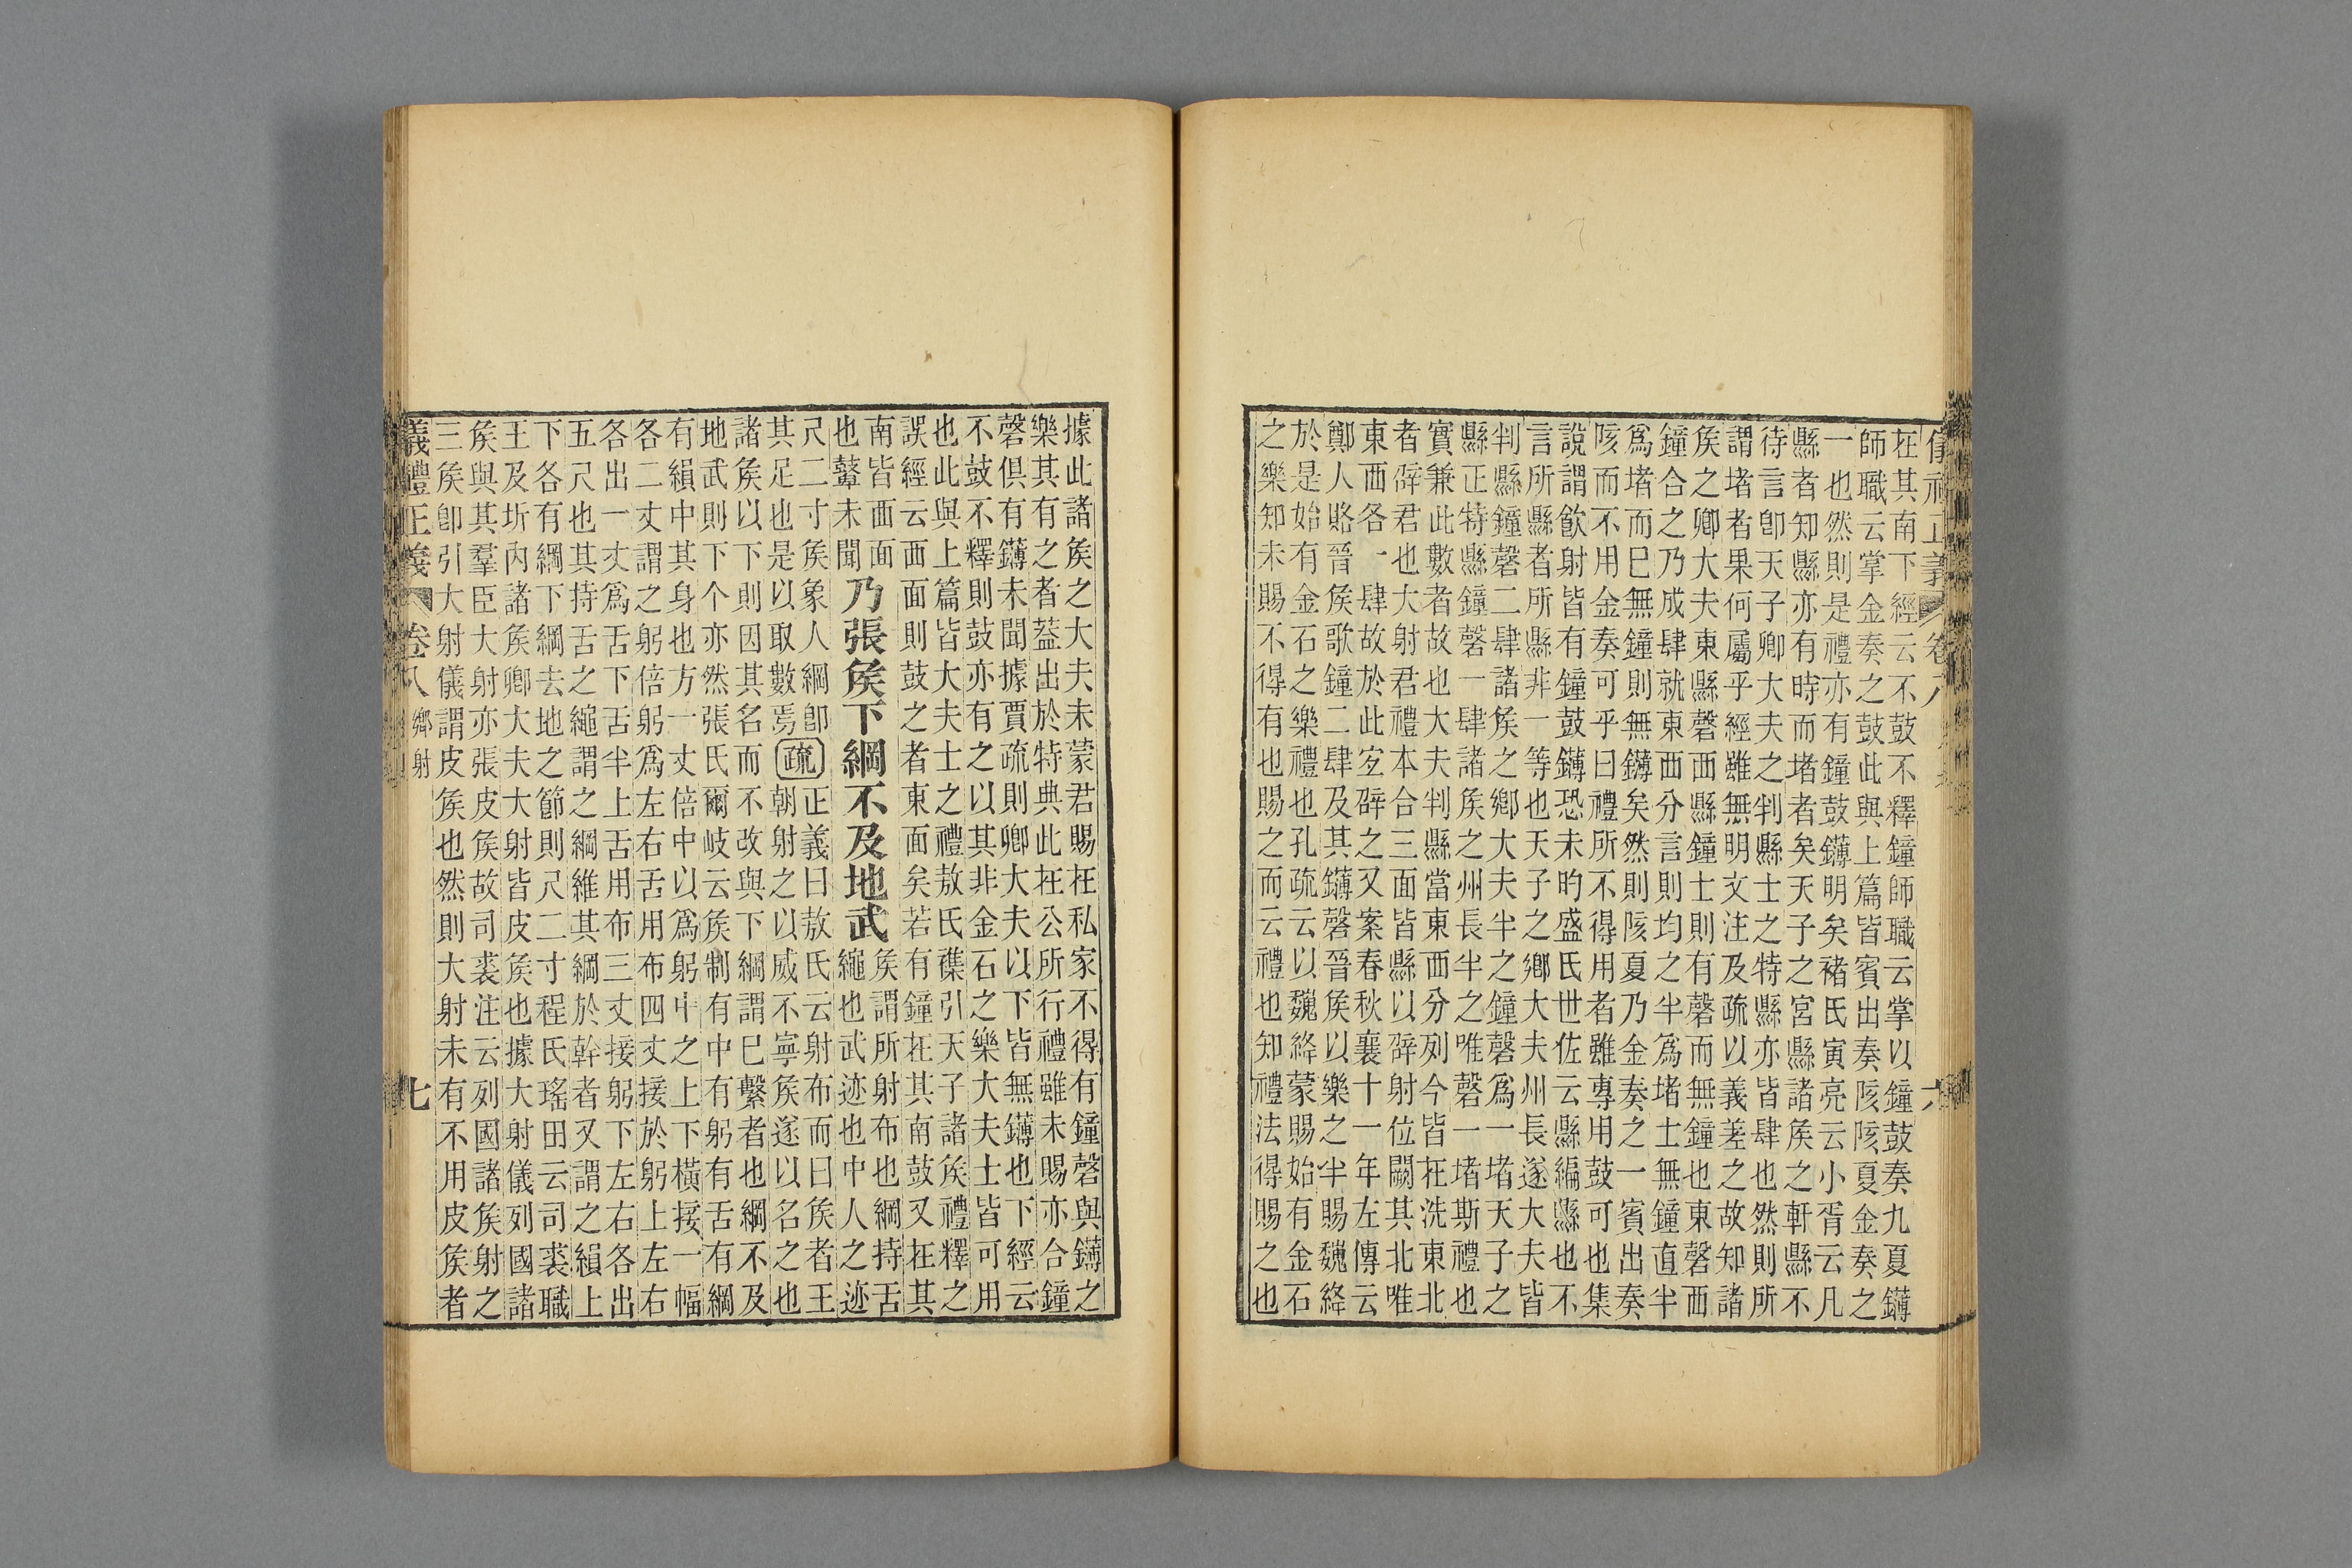 儀禮正義 卷八 六
在其南下經云不鼓不釋鐘師職云掌以鐘鼓奏九夏鑮
師職云掌金奏之鼓此與上篇皆賓出奏陔陔夏金奏之
一也然則是禮亦有鐘鼓鑮明矣褚氏寅亮云小胥云凡
縣者知縣亦有時而堵者矣天子之宮縣諸矦之軒縣不
待言卽天子卿大夫之判縣士之特縣亦皆肆也然則所
謂堵者果何屬乎經雖無明文注及疏以義差之故知諸
矦之卿大夫東縣磬西縣鐘士則有磬而無鐘也東磬西
鐘合之乃成肆就東西分言則均之半爲堵士無鐘直半
爲堵而已無鐘則無鑮矣然則陔夏乃金奏之一賓出奏
陔而不用金奏可乎曰禮所不得用者雖專用鼓可也集
說謂飮射皆有鐘鼓鑮恐未旳盛氏世佐云縣編縣也不
言所縣者所縣非一等也天子之鄕大夫州長遂大夫皆
判縣鐘磬二肆諸矦之鄕大夫半之鐘磬爲一堵天子之
縣正特縣鐘磬一肆諸矦之州長半之唯磬一堵斯禮也
實兼此數者故也大夫判縣當東西分列今皆在洗東北
者辟君也大射君禮本合三面皆縣以辟射位闕其北唯
東西各一肆故於此㝎辟之又案春秋襄十一年左傳云
鄭人賂晉矦歌鐘二肆及其鑮磬晉矦以樂之半賜魏絳
於是始有金石之樂禮也孔疏云以魏絳蒙賜始有金石
之樂知未賜不得有也賜之而云禮也知禮法得賜之也
據此諸矦之大夫未蒙君賜在私家不得有鐘磬與鑮之
樂其有之者葢出於特典此在公所行禮雖未賜亦合鐘
磬俱有鑮未聞據賈疏則卿大夫以下皆無鑮也下經云
不鼓不釋則鼓亦有之以其非金石之樂大夫士皆可用
也此與上篇皆大夫士之禮敖氏襍引天子諸矦禮釋之
誤經云西面則鼓之者東面矣若有鐘在其南鼓又在其
南皆西面
也鼙未聞
乃張矦下綱不及地武
矦謂所射布也綱持舌
繩也武迹也中人之迹
尺二寸矦象人綱卽
其足也是以取數焉
疏
正義曰敖氏云射布而曰矦者王
朝射之以威不寧矦遂以名之也
諸矦以下則因其名而不改與下綱謂已繫者也綱不及
地武則下个亦然張氏爾岐云矦制有中有躬有舌有綱
有縜中其身也方一丈倍中以爲躬中之上下橫接一幅
各二丈謂之躬倍躬爲左右舌用布四丈接於躬上左右
各出一丈爲舌下舌半上舌用布三丈接躬下左右各出
五尺也其持舌之繩謂之綱維其綱於幹者又謂之縜上
下各有綱下綱去地之節則尺二寸程氏瑤田云司裘職
王及圻內諸矦卿大夫大射皆皮矦也據大射儀列國諸
矦與其羣臣大射亦張皮矦故司裘注云列國諸矦射之
三矦卽引大射儀謂皮矦也然則大射未有不用皮矦者
義禮正義 卷八 鄉射 七